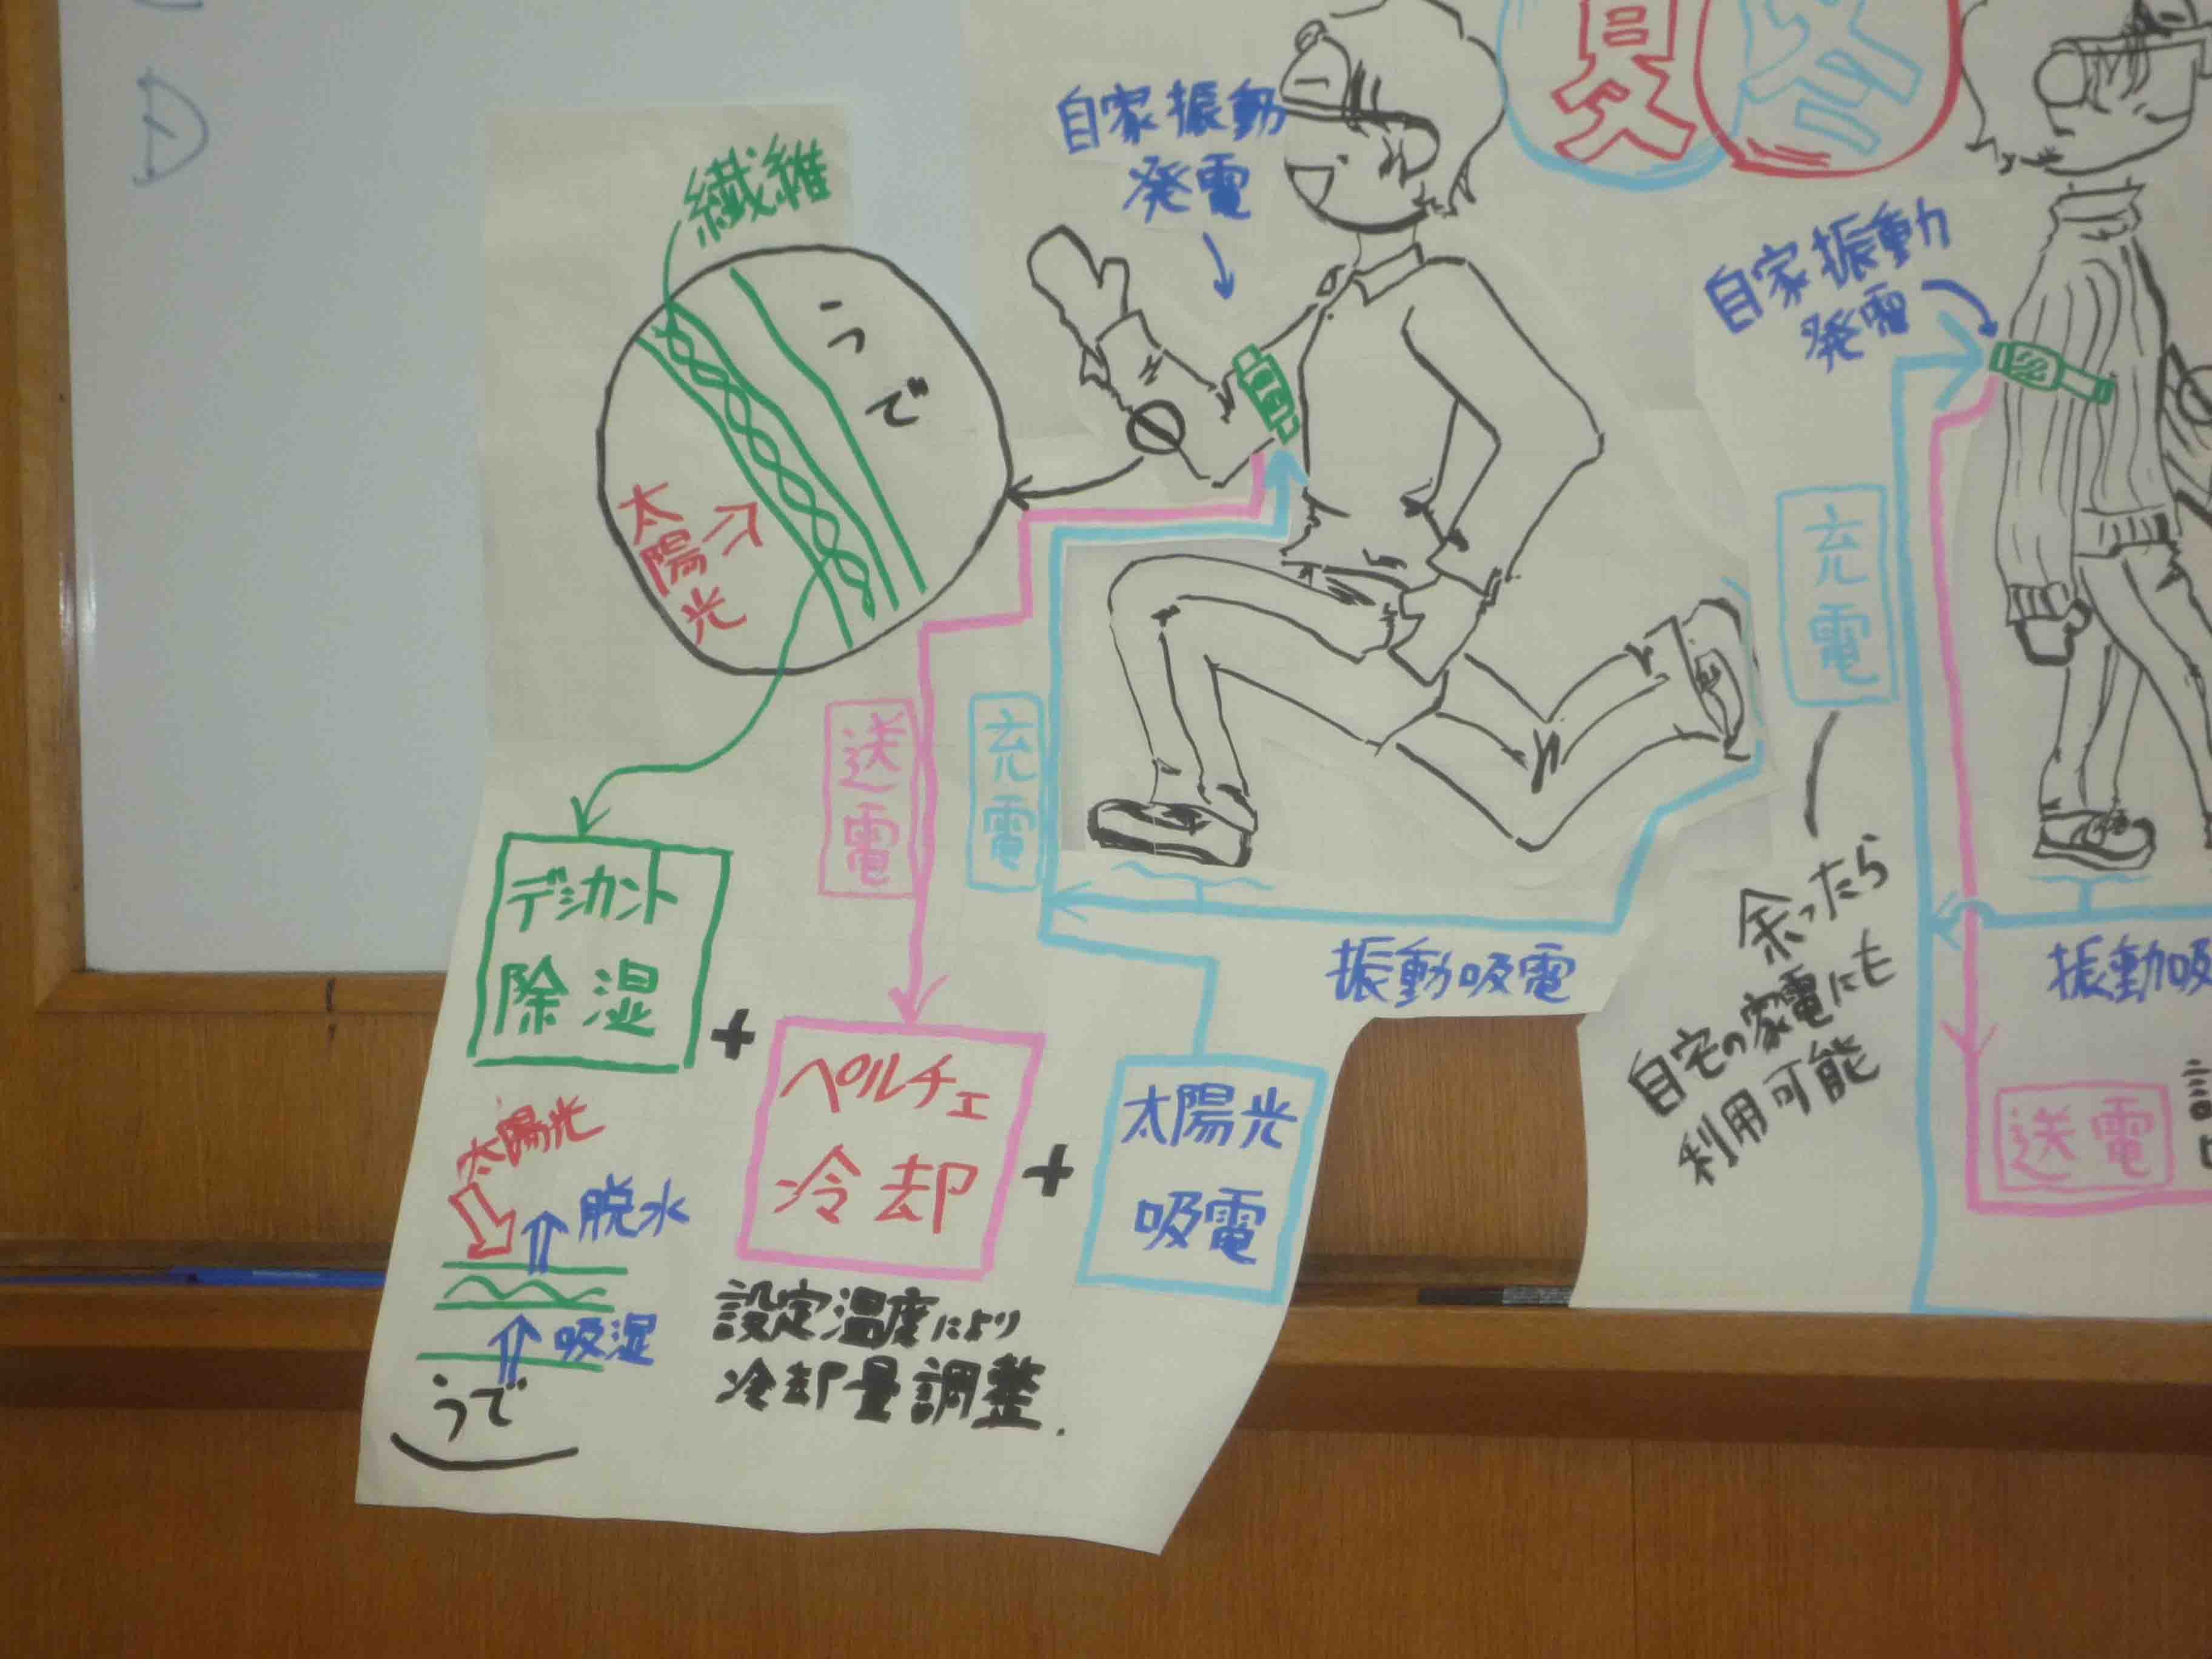 D
夏
冬
自家振動
発電
繊維
うで
太陽光
自家振動
発電
充電
送電
充電
余ったら
自宅の家電にも
利用可能
デシカント
除湿
+
ペルチェ
冷却
+
太陽光
吸電
振動吸電
振動吸
送電
太陽光
脱水
吸湿
うで
設定温度により
冷却量調整.